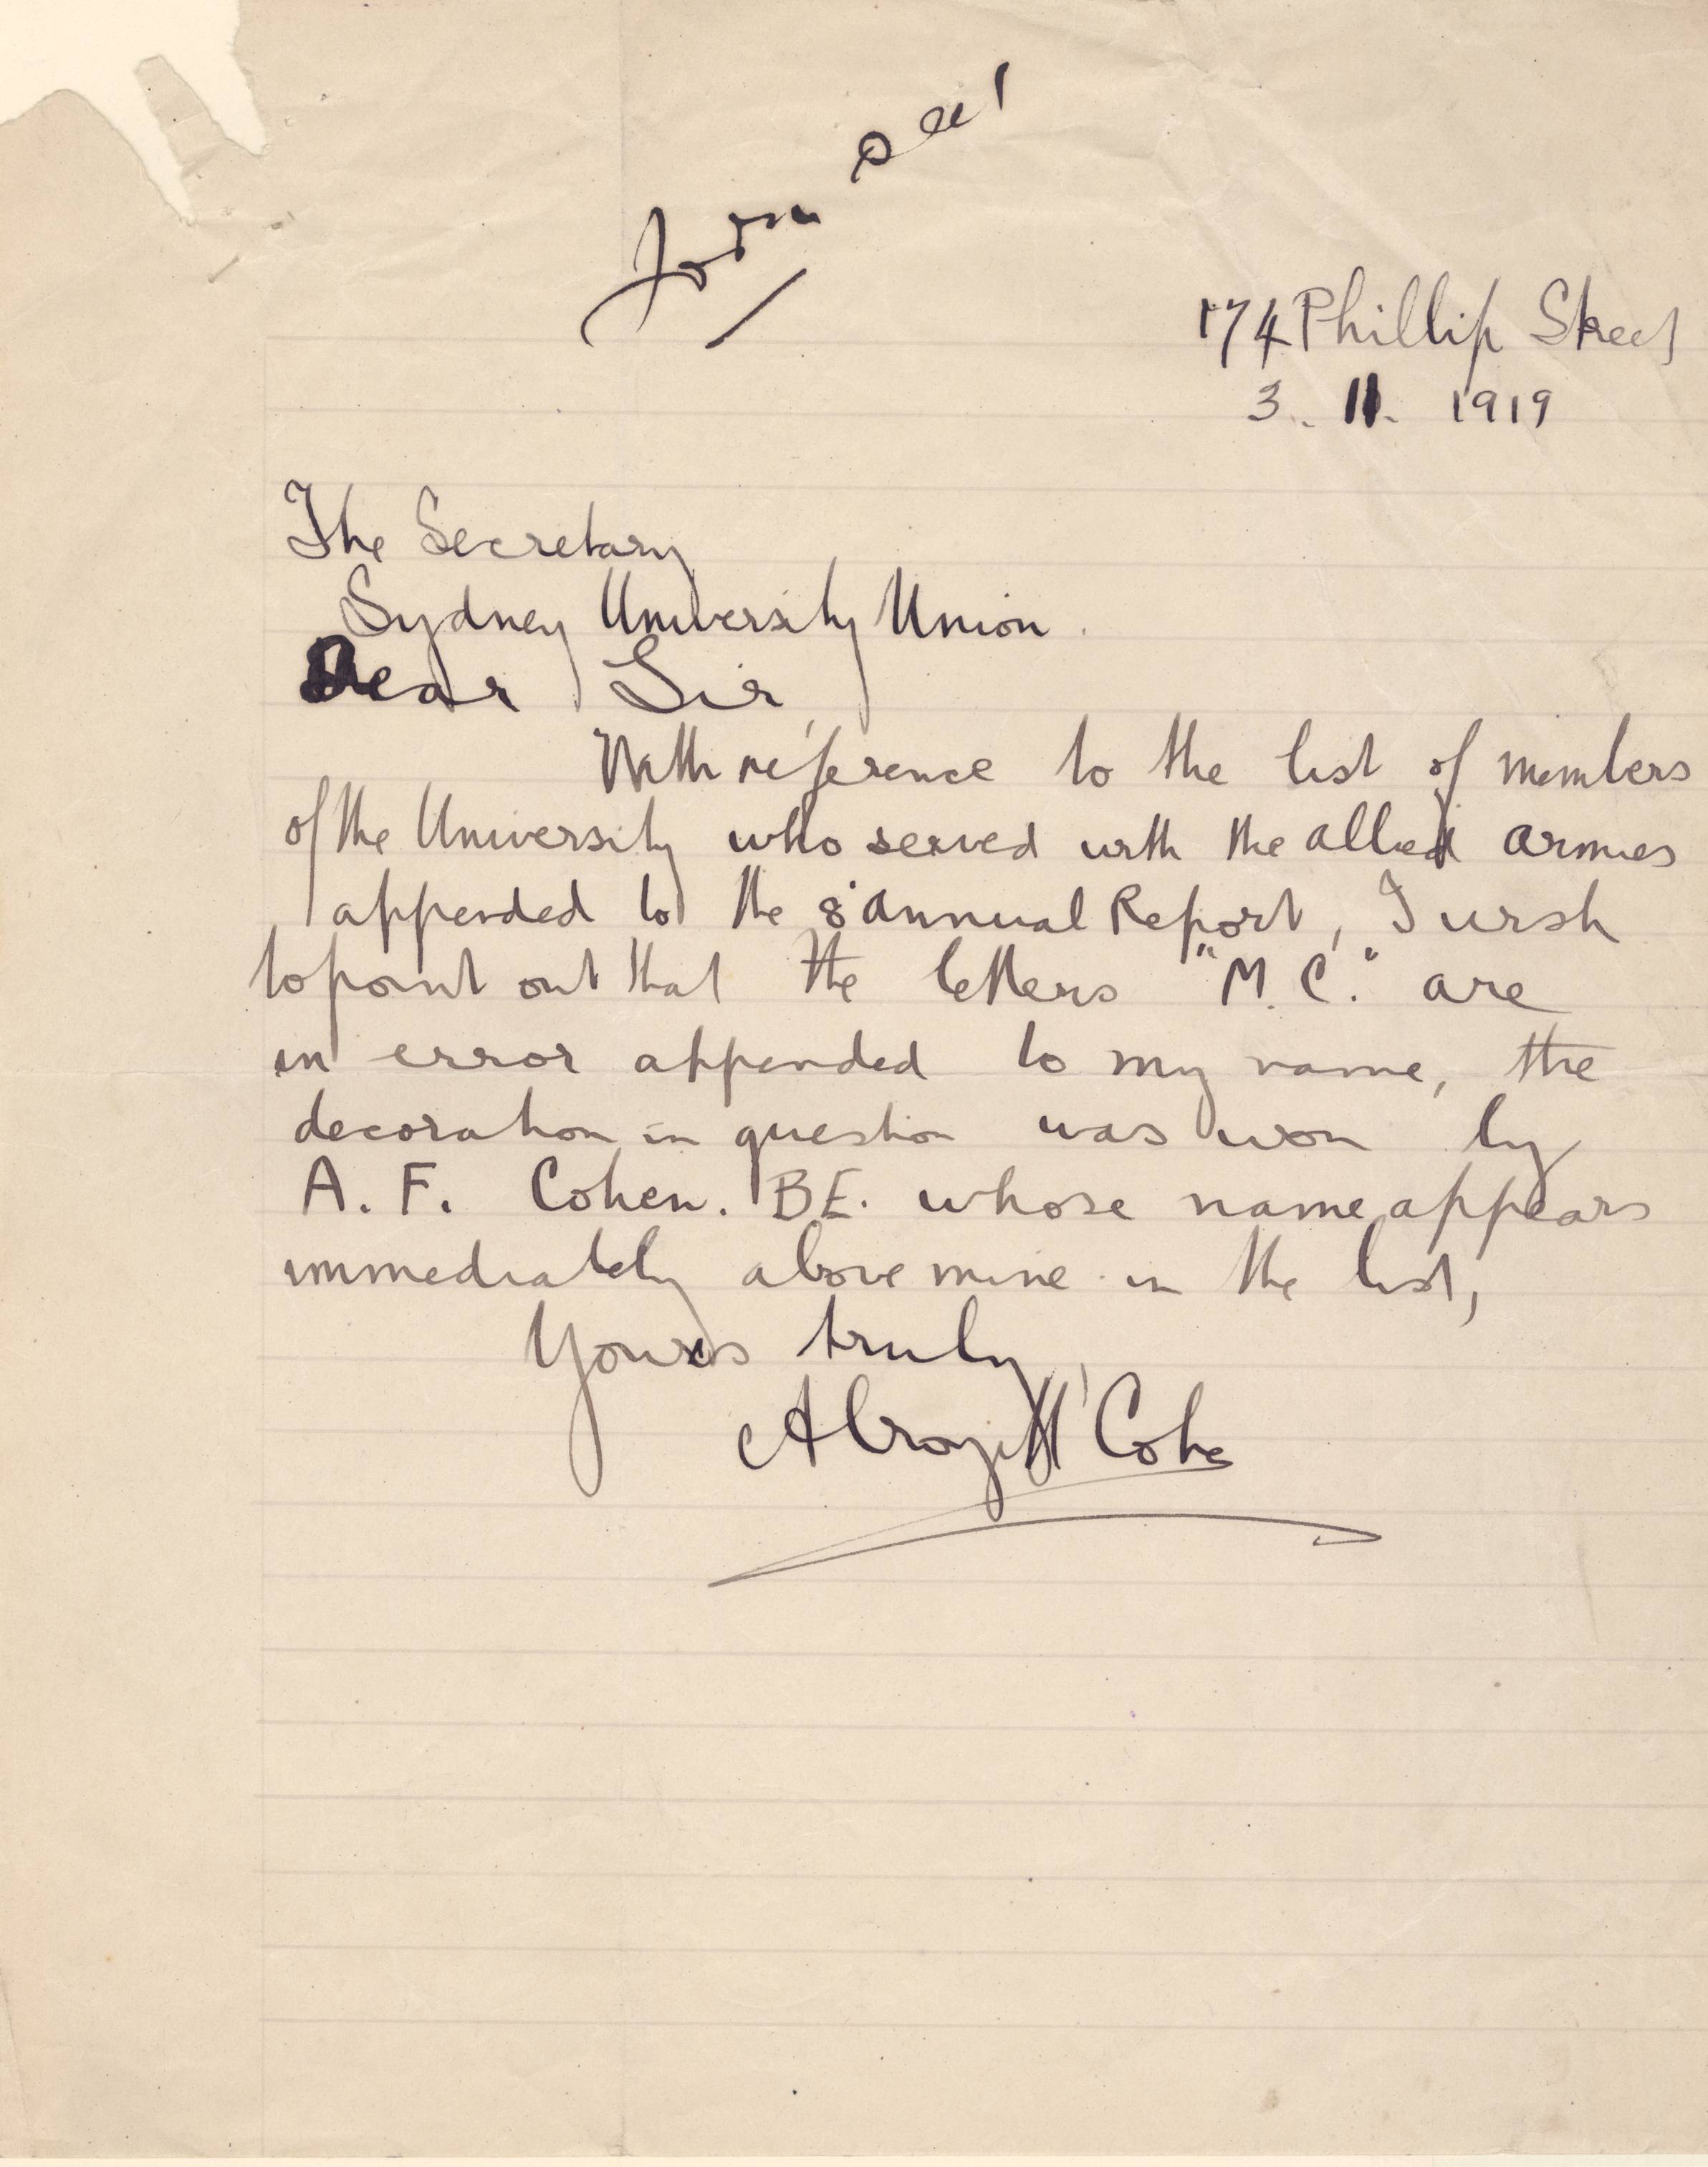 174 Phillip Street
3. 11. 1919
The Secretary
Sydney University Union.
Dear Sir,
With reference to the list of members
of the University who served with the allied armies
appended to the 8 annual Report, I wish
to point out that the letters "M.C." are
in error appended to my name, the
decoration in question was won by
A. F. Cohen. B.E. whose name appears
immediately above mine in the list,
Yours truly,
Cohen